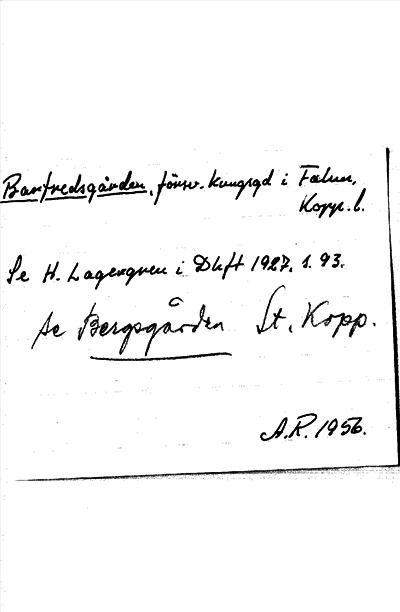 Banfredsgården, försv. kungsgd i Falun,
Kopp. l.
Se H. Lagergren i Dhft 1927, s. 93.
se Bergsgården St. Kopp.
A.R. 1956.